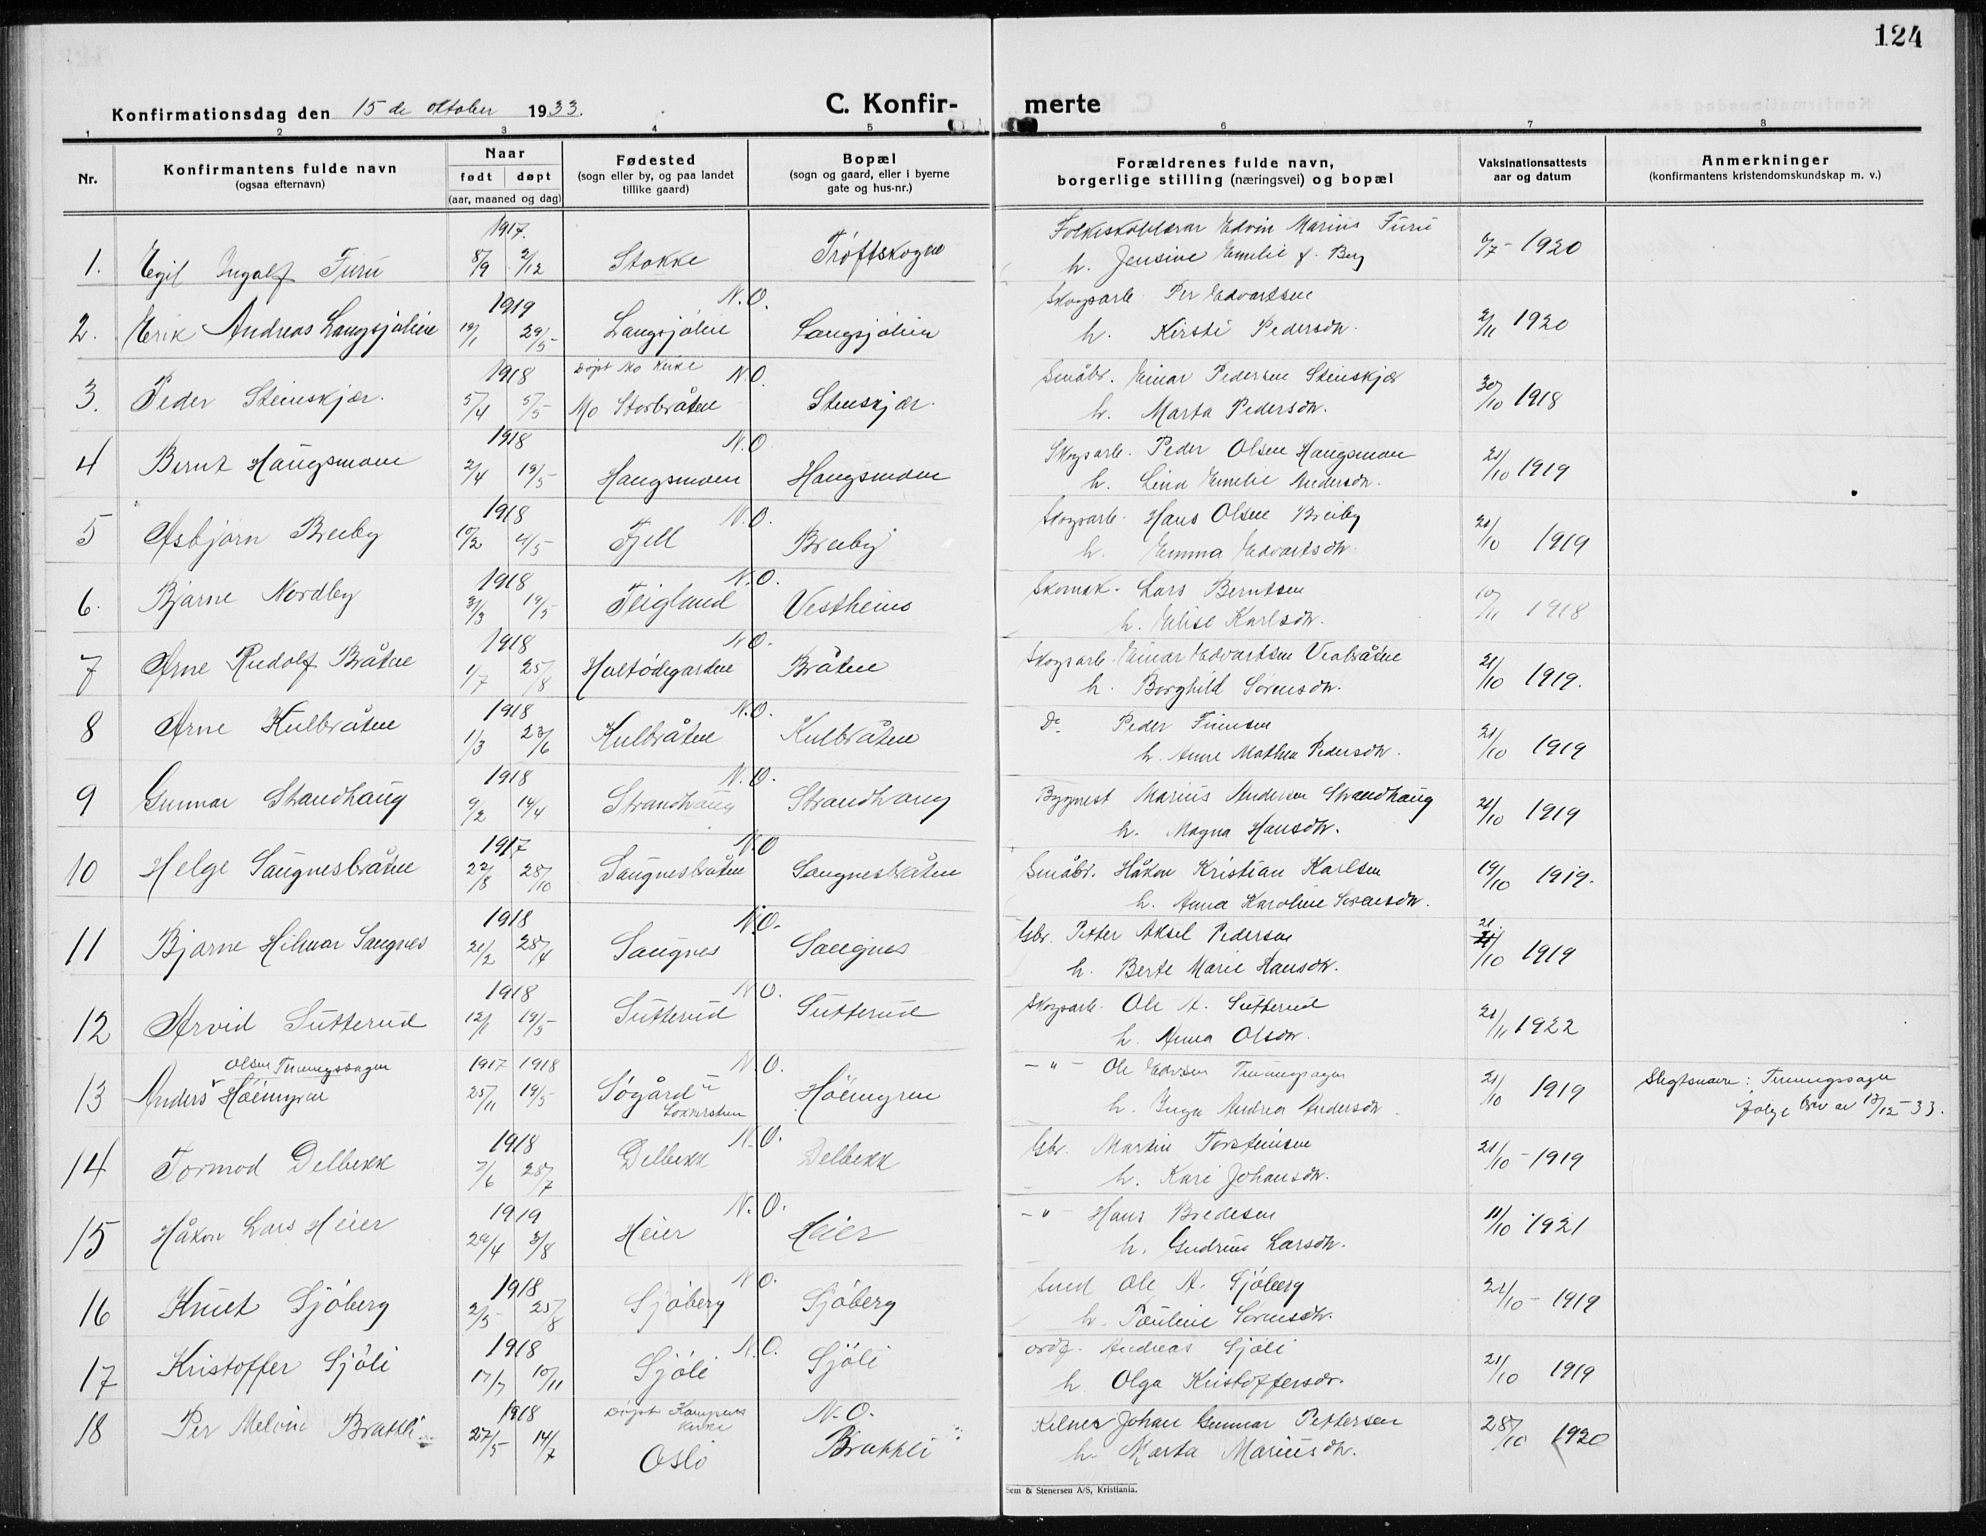 124
Konfirmationsdag den 15 de oktober 1933.
C. Konfir- merte
1 2 3 4 5 6 7 8
Nr.
Konfirmantens fulde navn
(ogsaa efternavn)
Naar
født døpt
(aar, maaned og dag)
Fødested
(sogn eller by, og paa landet
tillike gaard)
Bopæl
(sogn og gaard, eller i byerne
gate og hus-nr.)
Forældrenes fulde navn,
borgerlige stilling (næringsvei) og bopæl
Vaksinationsattests
aar og datum
Anmerkninger
(konfirmantens kristendomskundskap m. v.)
1917. Folkeskolelærar Edvin Marius Furu
1. Egil Ingolf Furu 8/9 2/12 Stokke Trøftskogen 1920
h. Jensine Emilie f. Berg
1919 N.O. Skogsarb. Per Edvartsen
2. Erik Andreas Langsjølien 19/1 29/5 Langsjølien Langsjølien 2/11 1920
h. Kirsti Pedersdtr.
1918 Døpt Mo Kirke N.O. Småbr. Einar Pedersen Steinskjær
3. Peder Steinskjær. 5/4 5/5 Mo Storbråten Stenskjær. 30/10 1918
h. Marta Pedersdtr.
1918 N.O. Skogsarb. Peder Olsen Haugsmoen
4 Bernt Haugsmoen 2/4 19/5 Haugsmoen Haugsmoen 21/10 1919
h. Lina Emelie Andersdtr.
1918 N.O. Skogsarb. Hans Olsen Breiby
5 Asbjørn Breiby 10/2 4/5 Fjell Breiby 21/10 1919
h. Emma Edvartsdtr.
1918 N.O. Skomak. Lars Berntsen
6. Bjarne Nordby 3/3 19/5 Teigland Vestheim 10/11 1918
h. Elise Karlsdtr.
1918 N.O. Skogsarb. Einar Edvartsen
7 Arne Rudolf Bråten 1/7 25/8 Holtødegarden Bråten 21/10 1919.
h. Borghild Sørensdtr.
1918 N.O. Do Peder
8 Arne Kulbråten 1/3 23/6 Kulbråten Kulbråten 21/10 1919
h. Anne Mathea Pedersdtr.
1918 N.O. Bygnest Marius Andersen Strandhaug
9 Gunnar Strandhaug 9/2 14/4 Strandhaug Strandhaug 21/10 1919
h. Magna Hansdtr.
1917 N.O Småbr. Håkon Kristian Karlsen
10 Helge Saugnesbråten 22/8 28/10 Saugnesbråten Saugnesbråten 19/10 1919.
h. Anna Karoline Sørensdtr.
1918 N.O. Gbr. Petter Aksel Pedersen
11 Bjarne Hilmar Saugnes 21/2 28/4 Saugnes Saugnes 21/10 1919
h. Berte Marie Hansdtr.
1918 N.O. Skogsarb. Ole A. Sutterud
12 Arvid Sutterud 12/1 19/5 Sutterud Sutterud 21/11 1922
h. Anna Olsdtr.
Olsen Tinungssagen 1917 1918 N.O. - " - Ole Tinungssagen
13 Anders Høiemyren 25/11 19/5 Søgård Høiemyren 21/10 1919 Slegtsnavn: Tinungssagen
h. Inga Andrea Andersdtr. følge brev av 13/12-33.
1918 N.O. Gbr. Martin Torsteinsen
14 Tormod Delbekk 7/6 28/7 Delbekk Delbekk 21/10 - 1919
h. Kari Johansdtr.
1919 N.O. - " - Hans Bredesen
15 Håkon Lars Heier 29/4 3/8 Heier Heier 11/10 1921
h. Gudrun Larsdtr.
1918 N.O. Smed Ole A. Sjøberg
16 Knut Sjøberg 2/5 25/8 Sjøberg Sjøberg 21/10 - 1919
h. Pauline Sørensdtr.
1918 N.O. ordf. Andreas Sjøli
17 Kristoffer Sjøli 17/7 10/11 Sjøli Sjøli 21/10 1919
h. Olga Kristoffersdr.
1918 Døpt Kampens Kirke N.O. Kelner Johan Gunnar Pettersen
18 Per Melvin Brakkli 27/5 14/7 Oslo Brakkli 28/10 1920
h. Marta Mariusdtr.
Sem & Stenersen A/S, Kristiania.